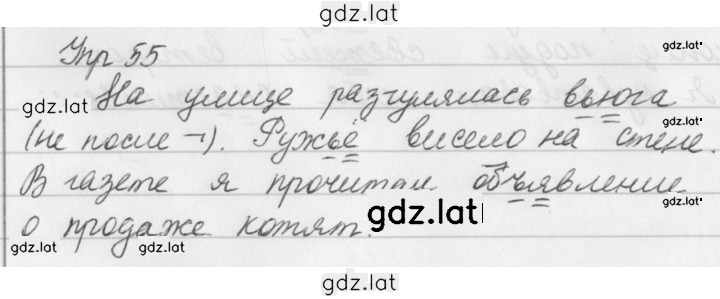 gdz.lat
Упр 55
gdz.lat
gdz.lat
На улице разгулялась вьюга
(не после ¬). Ружьё висело на стене.
gdz.lat
В газете я прочитал объявление
gdz.lat
о продаже котят.
gdz.lat
gdz.lat
gdz.lat